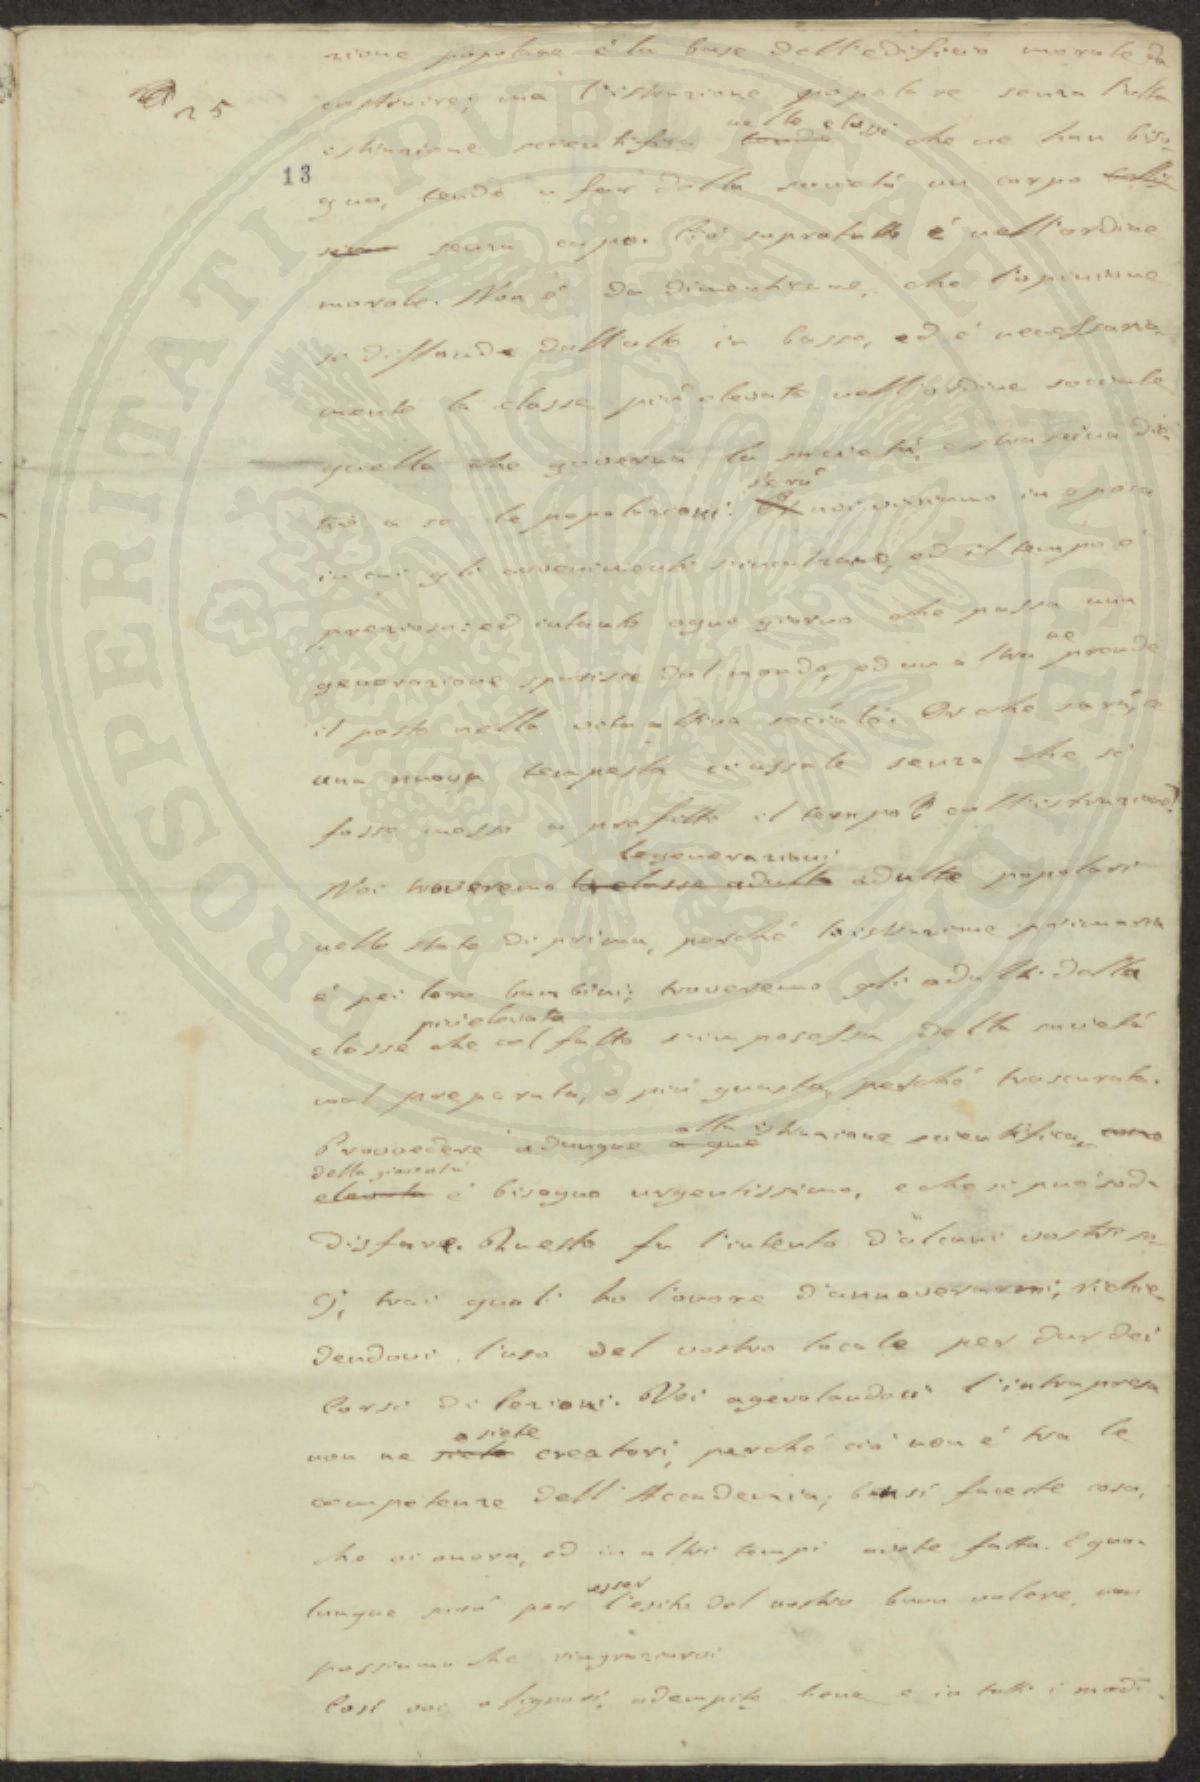 25
13
zione popolare è la base dell'edificio morale da
costruire; ma l'istruzione popolare senza l'alta
istruzione scientifica tende nelle classi che ne han biso-
gno, tende a far della società un corpo
senza capo. Ciò sopratutto è nell'ordine
morale. Non è da dimenticare, che l'opinione
si diffonde dall'alto in basso, ed è necessaria-
mente la classe più elevata nell'ordine sociale
quella che governa la società, e strascina die-
tro a se le popolazioni. Però noi viviamo in epoca
in cui gli avvenimenti s'incalzano, ed il tempo è
prezioso: ed intanto ogni giorno che passa una
generazione sparisce dal mondo, ed un altra ne prende
il posto nella vita attiva sociale. Or che sarà, se
una nuova tempesta ci assale senza che si
fosse messo a profitto il tempo coll'istruzione?
Noi troveremo la classe adulta le generazioni adulte popolari
nello stato di prima, perché la istruzione primaria
è pei loro bambini; troveremo gli adulti della
classe più elevata che col fatto s'impossessa della società
mal preparata, e più guasta, perché trascurata.
Provvedere adunque a que alla istruzione scientifica come
elevata della gioventù è bisogno urgentissimo, e che si può sod-
disfare. Questo fu l'intento d'alcuni vostri so-
cj, trai quali ho l'onore d'annoverarmi, richie-
dendovi l'uso del vostro locale per dar dei
Corsi di lezioni. Voi agevolandovi l'intrapresa
non ne siete o siete creatori, perché ciò non è tra le
competenze dell'Accademia; bensì faceste cosa,
che vi onora, ed in altri tempi avete fatta. E qua-
lunque sarà per esser l'esito del vostro buon volere, non
possiamo che ringraziarvi
Così voi o Signori, adempite bene e in tutti i modi
PROSPERITATI PVBLICAE AVGENDAE